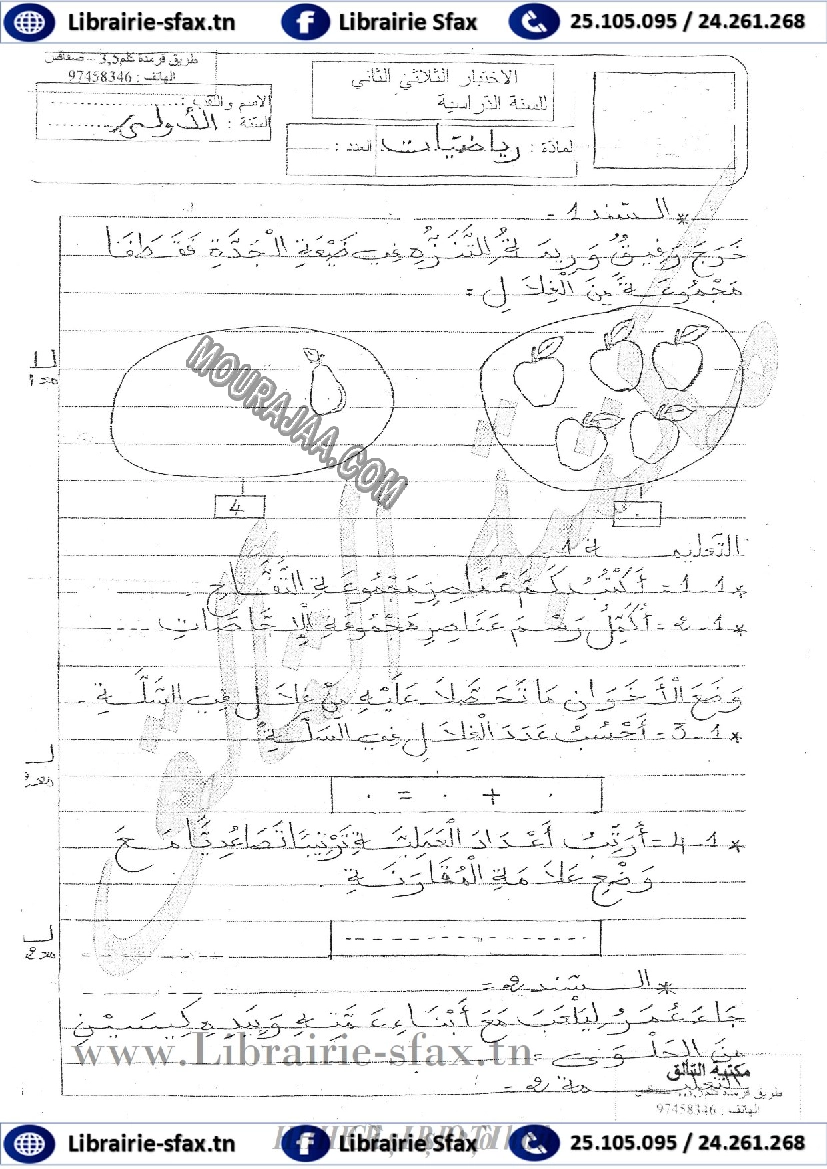 Librairie-sfax.tn Librairie Sfax 25.105.095 / 24.261.268
طريق قرمدة كلم3,5 - صفاقس
الهاتف : 97458346
الاختبار الثلاثي الثاني
للسنة الدراسية
الاسم واللقب :
السنة : الأولى
المادة : رياضيات العدد :
*السند 1 =
خَرَجَ رَفِيقٌ وَرِيمَةُ لِلتَّنَزُّهِ فِي ضَيْعَةِ الْجَدَّةِ فَقَطَفَا
مَجْمُوعَةً مِنَ الْغِلَالِ =
مع 1
MOURAJAA.COM
4 .
التعليمة 1
*1-1= أَكْتُبُ كَمْ عَنَاصِرِ مَجْمُوعَةِ التُّفَّاحِ .
*1-2= أُكْمِلُ رَسْمَ عَنَاصِرِ مَجْمُوعَةِ الْإِجَّاصَاتِ ...
وَضَعَ الْأَخَوَانِ مَا تَحَصَّلَا عَلَيْهِ مِنْ غِلَالٍ فِي السَّلَّةِ .
*1-3= أَحْسُبُ عَدَدَ الْغِلَالِ فِي السَّلَّةِ
. + . = .
*1-4= أُرَتِّبُ أَعْدَادَ الْعَمَلِيَّةِ تَرْتِيبًا تَصَاعُدِيًّا مَعَ
وَضْعِ عَلَامَةِ الْمُقَارَنَةِ .
مع 2
*السند 2 =
جَاءَ عُمَرُ لِيَلْعَبَ مَعَ أَبْنَاءِ عَمَّتِهِ وَبِيَدِهِ كِيسَيْنِ
مِنَ الحَلْوَى =
www.Librairie-sfax.tn
مكتبة التألق
التعليمة 2 =
طريق قرمدة كلم3,5 - صفاقس
الهاتف : 97458346
Librairie-sfax.tn Librairie Sfax 25.105.095 / 24.261.268